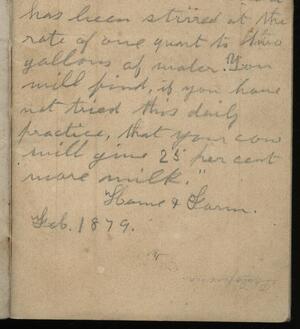 has been stirred at the
rate of one quart to two
gallons of water. You
will find, if you have
not tried this daily
practice, that your cow
will give 25 per cent
more milk."
Home & Farm.
Feb. 1879.